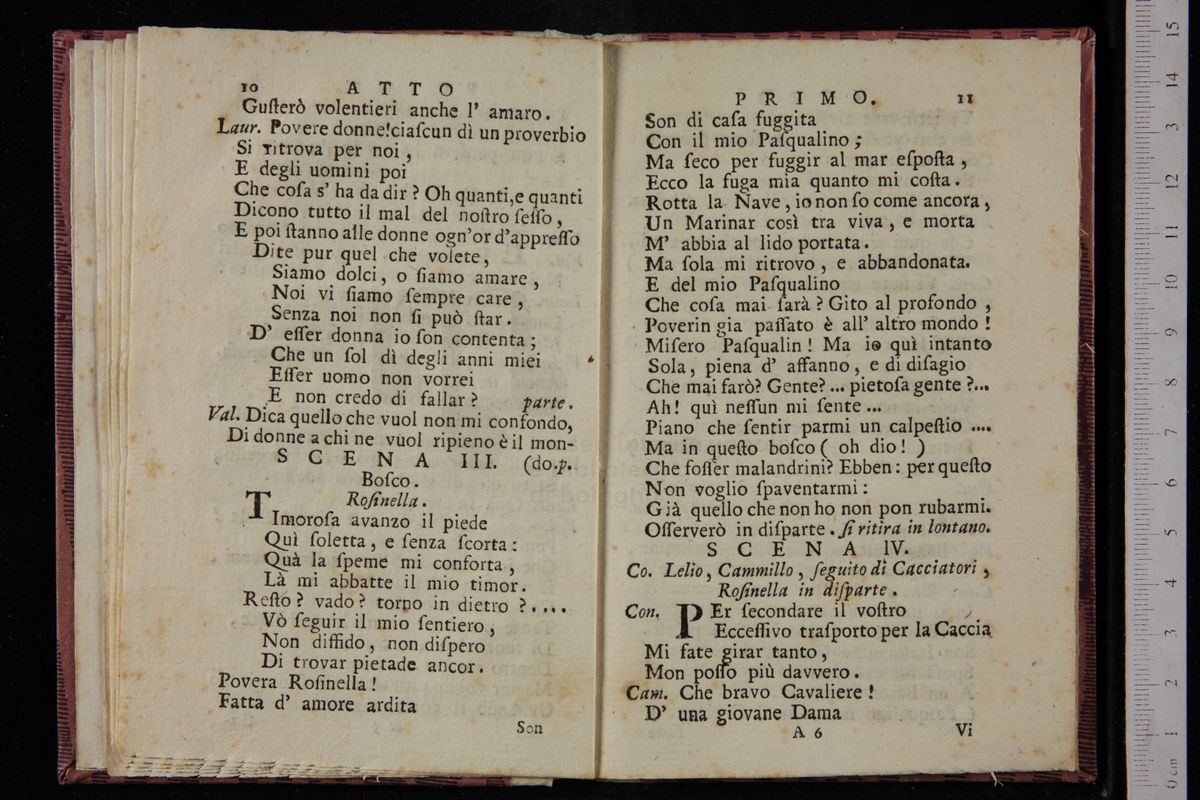 10 ATTO
Guſterò volentieri anche l' amaro.
Laur. Povere donne!ciaſcun dì un proverbio
Si ritrova per noi,
E degli uomini poi
Che coſa s' ha da dir? Oh quanti,e quanti
Dicono tutto il mal del noſtro ſeſſo,
E poi ſtanno alle donne ogn'or d'appreſſo
Dite pur quel che volete,
Siamo dolci, o ſiamo amare,
Noi vi ſiamo ſempre care,
Senza noi non ſi può ſtar.
D' eſſer donna io ſon contenta;
Che un ſol dì degli anni miei
Eſſer uomo non vorrei
E non credo di fallar? parte.
Val. Dica quello che vuol non mi confondo,
Di donne a chi ne vuol ripieno è il mon-
SCENA III. (do.p.
Boſco.
Roſinella.
TImoroſa avanzo il piede
Quì ſoletta, e ſenza ſcorta:
Quà la ſpeme mi conforta,
Là mi abbatte il mio timor.
Reſto? vado? torno in dietro?....
Vò ſeguir il mio ſentiero,
Non diffido, non diſpero
Di trovar pietade ancor.
Povera Roſinella!
Fatta d' amore ardita
Son
PRIMO. 11
Son di caſa fuggita
Con il mio Paſqualino;
Ma ſeco per fuggir al mar eſpoſta,
Ecco la fuga mia quanto mi coſta.
Rotta la Nave, io non ſo come ancora,
Un Marinar così tra viva, e morta
M' abbia al lido portata.
Ma ſola mi ritrovo, e abbandonata.
E del mio Paſqualino
Che coſa mai ſarà? Gito al profondo,
Poverin gia paſſato è all' altro mondo!
Miſero Paſqualin! Ma io quì intanto
Sola, piena d' affanno, e di diſagio
Che mai farò? Gente?... pietoſa gente?...
Ah! quì neſſun mi ſente...
Piano che ſentir parmi un calpeſtio....
Ma in queſto boſco ( oh dio! )
Che foſſer malandrini? Ebben: per queſto
Non voglio ſpaventarmi:
Già quello che non ho non pon rubarmi.
Oſſerverò in diſparte. ſi ritira in lontano.
SCENA IV.
Co. Lelio, Cammillo, ſeguito di Cacciatori,
Roſinella in diſparte.
Con. PEr ſecondare il voſtro
Ecceſſivo traſporto per la Caccia
Mi fate girar tanto,
Mon poſſo più davvero.
Cam. Che bravo Cavaliere!
D' una giovane Dama
A 6 Vi